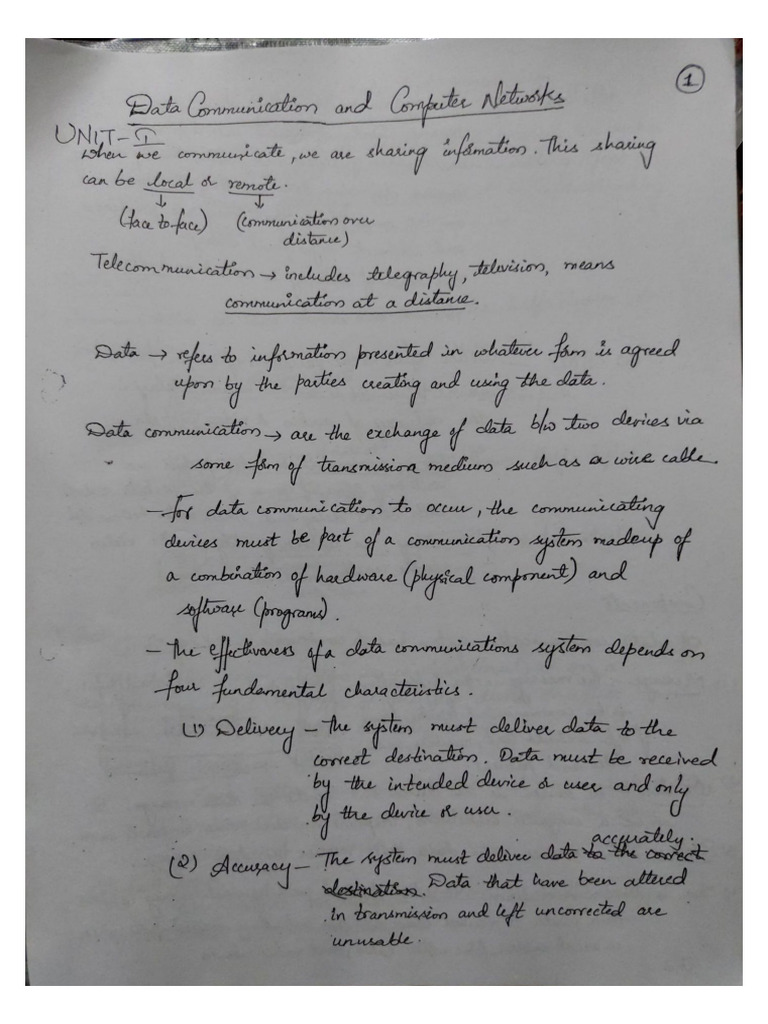 1
Data Communication and Computer Networks
UNIT-I
When we communicate, we are sharing information. This sharing
can be local or remote.
↓ ↓
(face to face) (communication over
distance)
Telecommunication → includes telegraphy, television, means
communication at a distance.
Data → refers to information presented in whatever form is agreed
upon by the parties creating and using the data.
Data communication → are the exchange of data b/w two devices via
some form of transmission medium such as a wire cable.
- For data communication to occur, the communicating
devices must be part of a communication system madeup of
a combination of hardware (physical component) and
software (programs).
- The effectiveness of a data communications system depends on
four fundamental characteristics.
(1) Delivery - The system must deliver data to the
correct destination. Data must be received
by the intended device or user and only
by the device or user.
accurately.
(2) Accuracy - The system must deliver data to the correct
destination. Data that have been altered
in transmission and left uncorrected are
unusable.